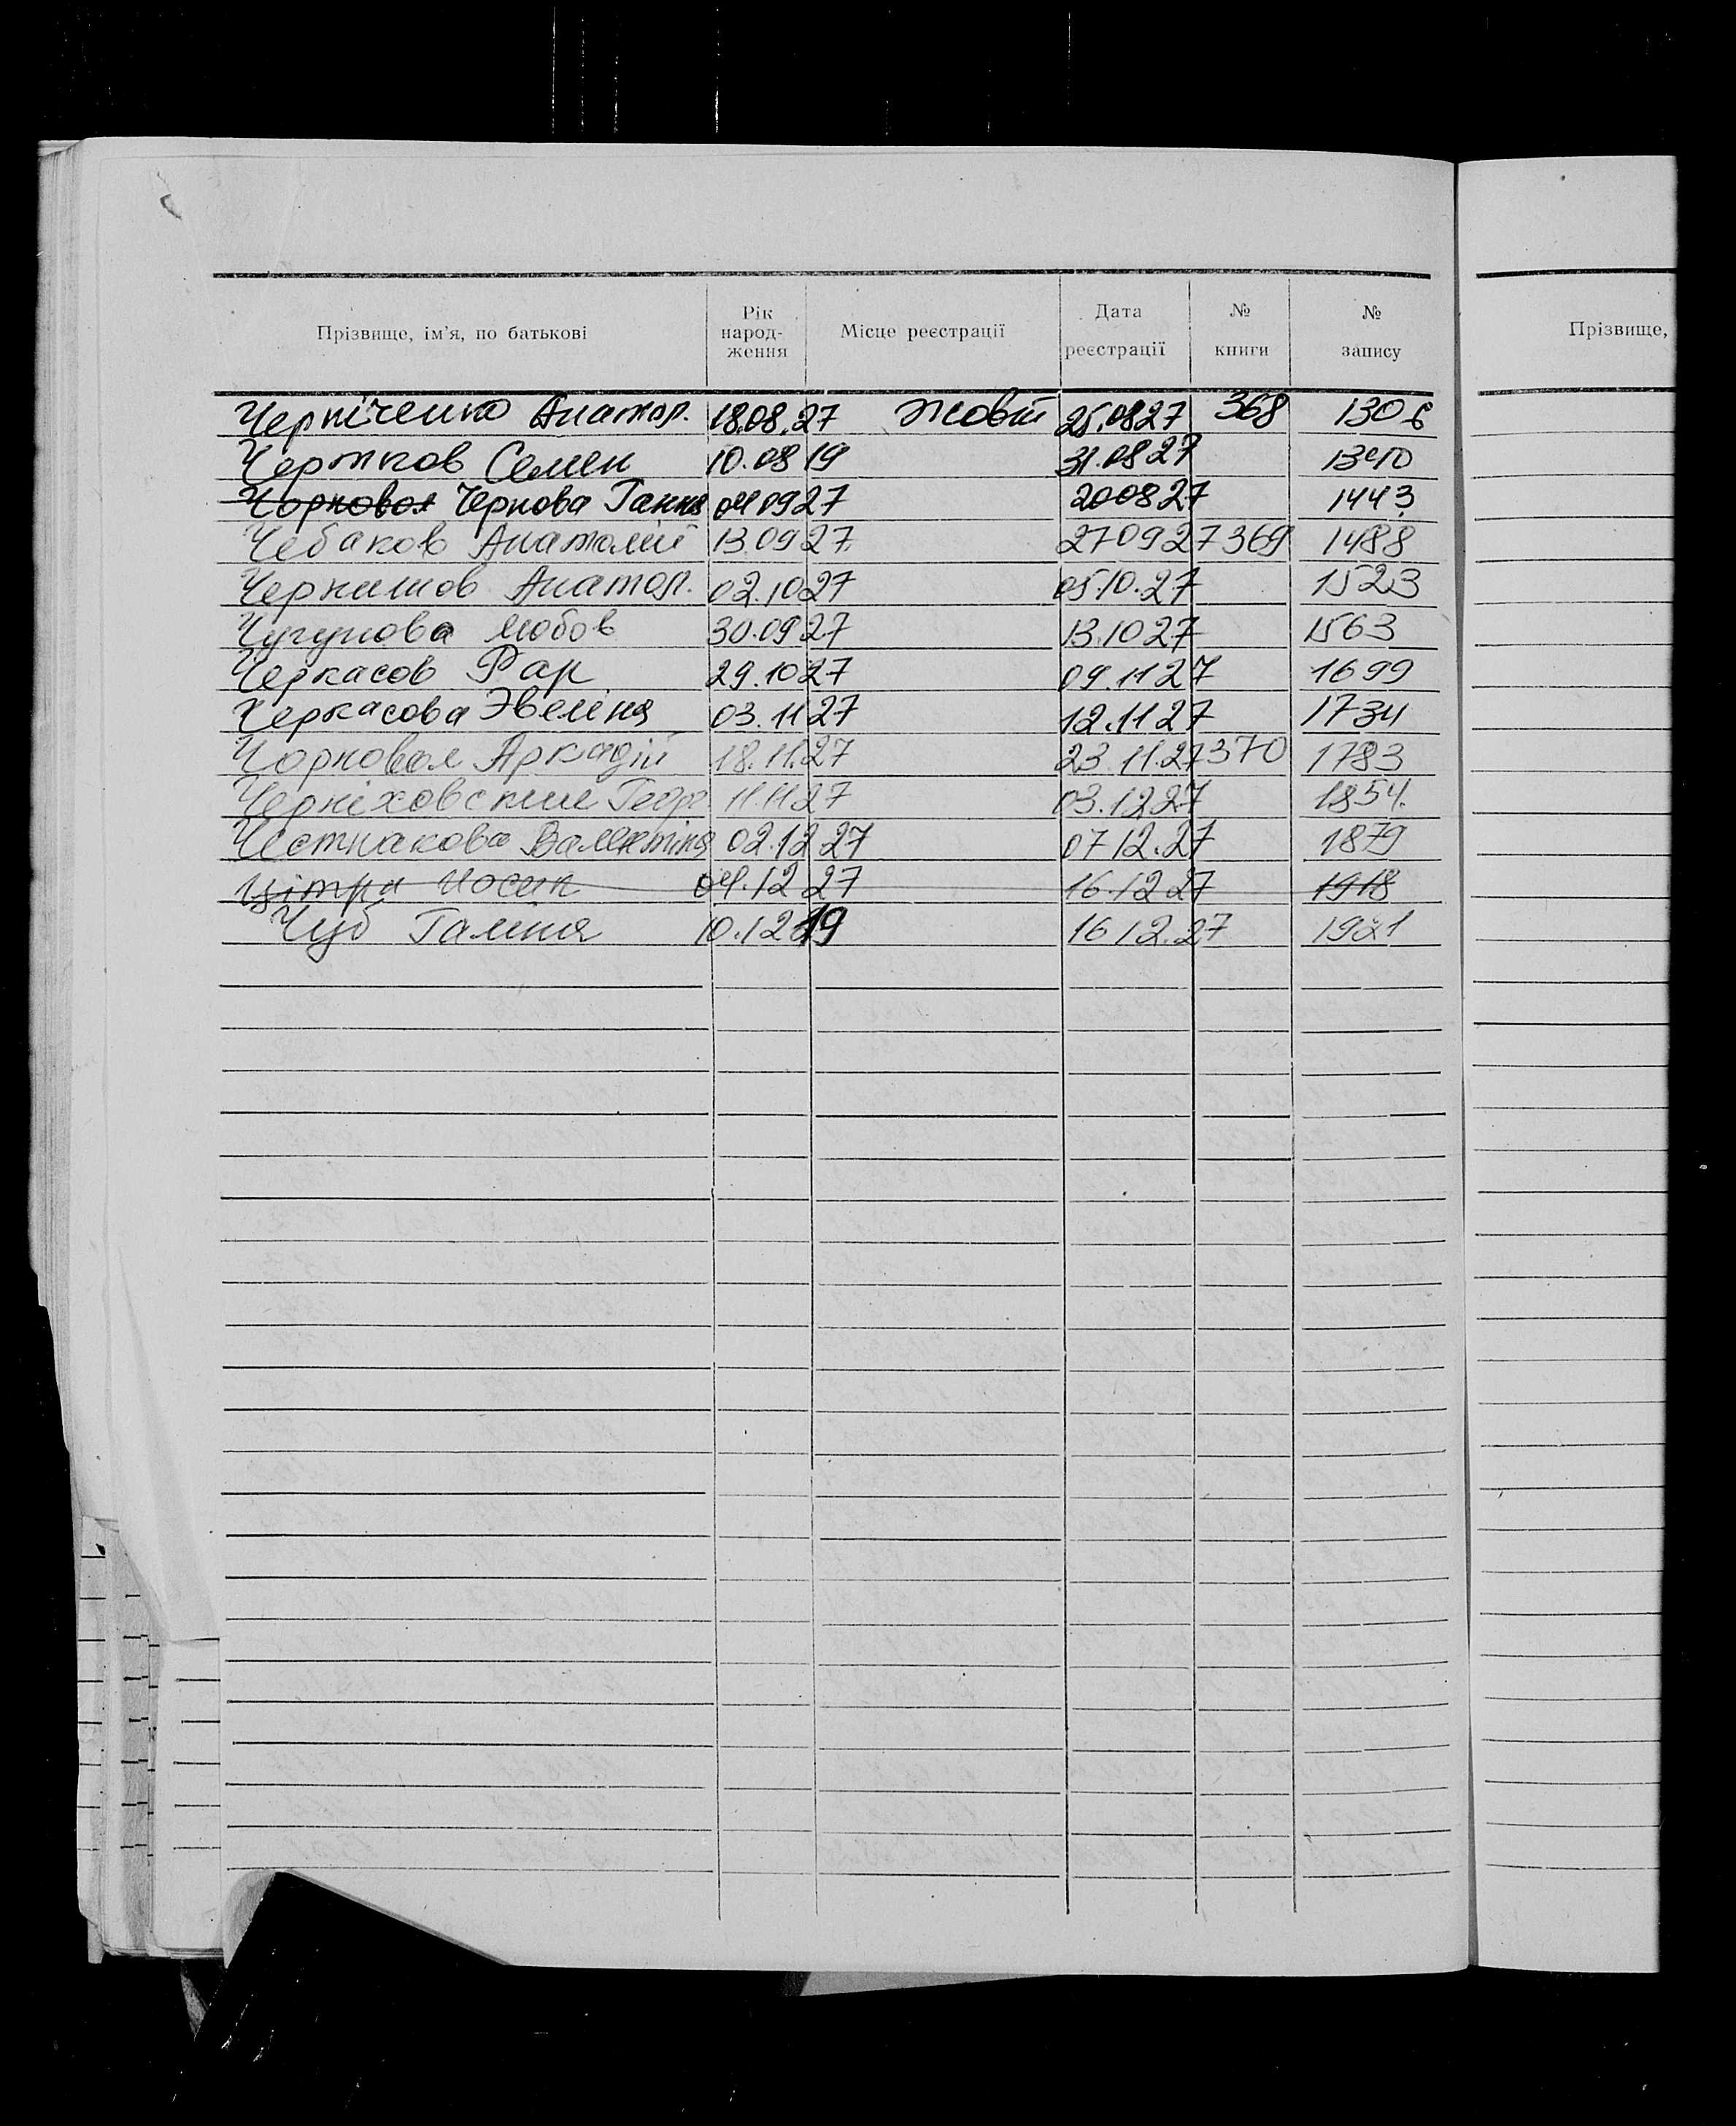 Прізвище, ім'я, по батькові Рік народ-ження Місце реєстрації Дата реєстрації № книги № запису
Черніченко Анатол. 18.08.27 Жовт 25.0827 368 1306
Чертков Семен 10.08 19 31.0827
Чорновол Чернова Ганна 040927 200827 1443
Чебаков Анатолій 130927 270927 369 1488
Чернишов Анатол. 02.1027 05.10.27 1523
Чугунова Любов 30.0927 13.1027 1563
Черкасов 29.1027 09.1127 1699
Черкасова Эвеліна 03.1127 12.1127 1734
Чорновол Аркадій 18.11.27 23.11.27 370 1783
Черніховський Георг 11.1127 03.1227 1854.
Честнакова Валентіна 02.1227 0712.27 1879
Цітра Иосип 04.12 27 16.1227 1918
Чуб Галина 10.12 19 1612.27 1921
Прізвище,